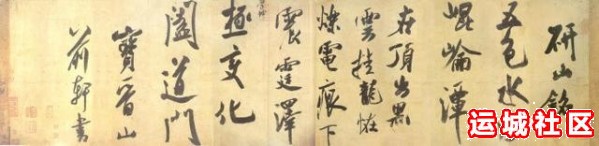 研山銘
五色水
崑崙潭
在頂出黑
雲挂龍怪
爍電痕下
震霆澤
極變化
闔道門
寶晉山
前軒書
运城社区